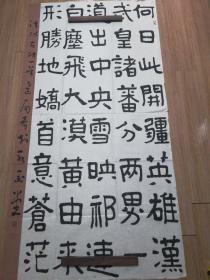 何日此開疆英雄漢
武皇諸蕃分兩界一
道出中央雪映祁連
白塵飛大漠黃由來
形勝地嬌首意蒼茫